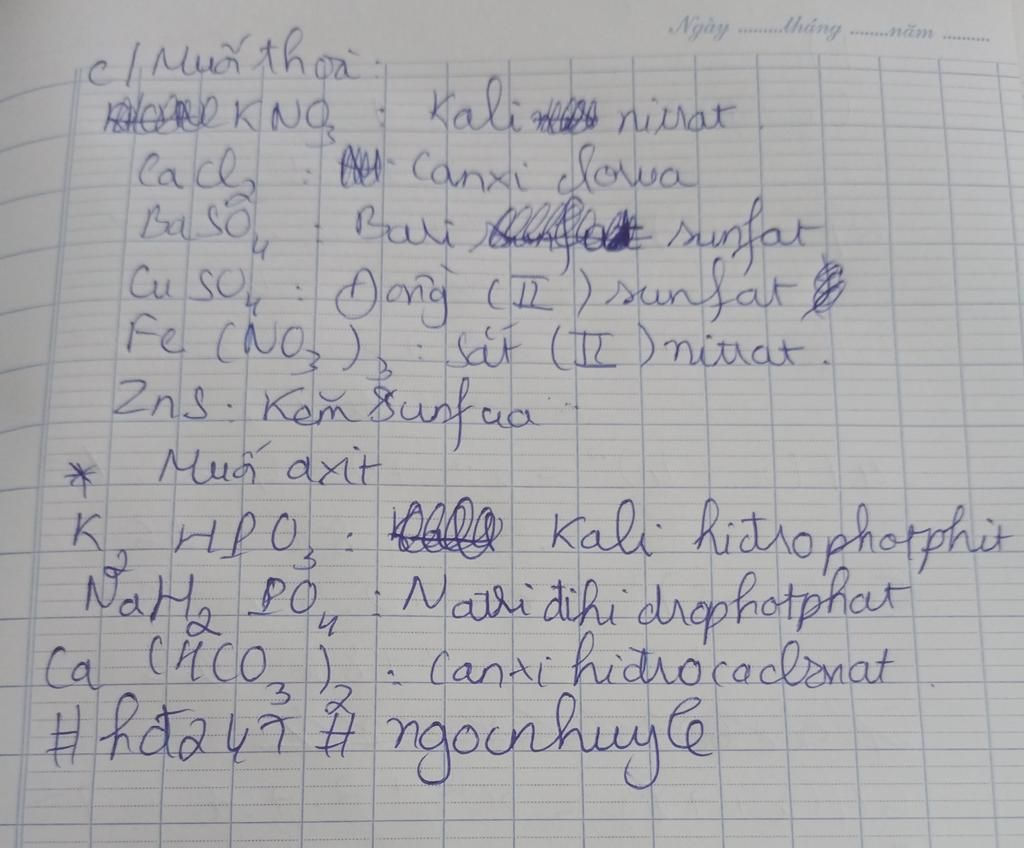 Ngày .........tháng ........năm ..........
c/ Muối thoà:
KNO3 : Kali nitrat
CaCl2 : Canxi clorua
BaSO4 : Bari sunfat
CuSO4 : Đồng (II) sunfat
Fe (NO3)3 : sắt (II) nitrat.
ZnS: Kẽm sunfua
* Muối axit
K2 HPO3 : Kali hiđrophotphit
NaH2 PO4 : Natri đihiđrophotphat
Ca (HCO3)2 : Canxi hiđrocacbonat
#hđ247 # ngocnhuyle